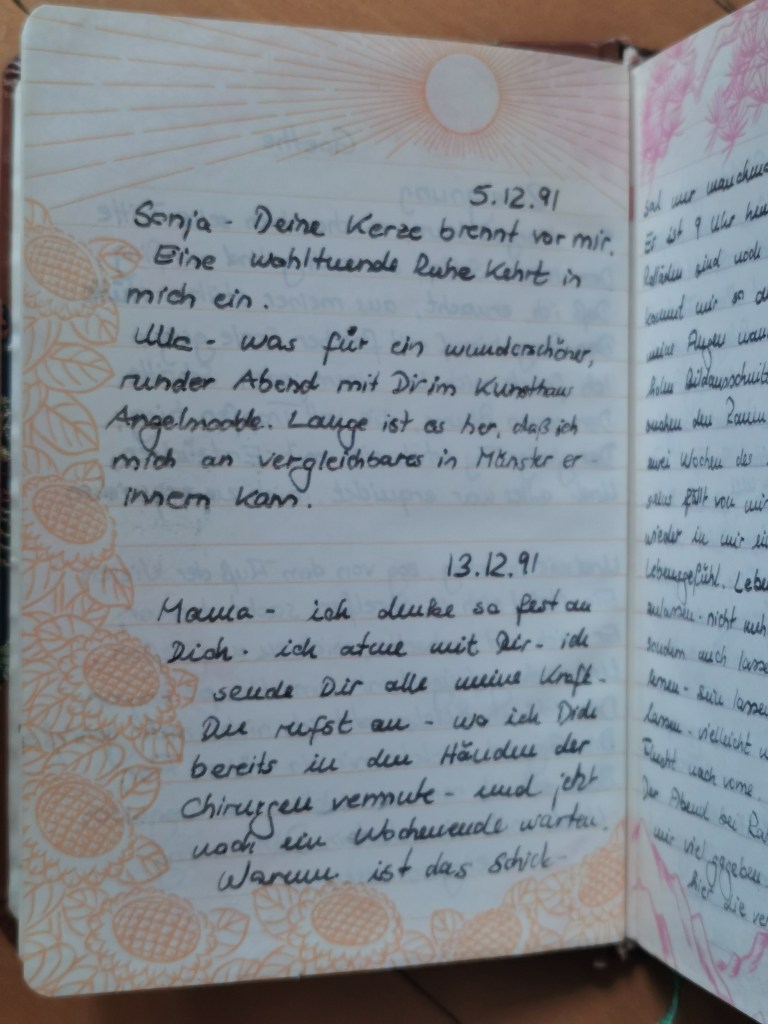 5.12.91
Sonja - Deine Kerze brennt vor mir.
Eine wohltuende Ruhe kehrt in
mich ein.
Ulla - was für ein wunderschöner,
runder Abend mit Dir im Kunsthaus
Angelmodde. Lange ist es her, daß ich
mich an vergleichbares in Münster er-
innern kann.
13.12.91
Mama - ich denke so fest an
Dich - ich atme mit Dir - ich
sende Dir alle meine Kraft -
Du rufst an - wo ich Dich
bereits in den Händen der
Chirurgen vermute - und jetzt
noch ein Wochenende warten.
Warum ist das Schick-
Es ist 9 Uhr
sind noch
kommt mir so
meine Augen
Bildausschnitt
suchen den Raum
zwei Wochen des
von mir
wieder in mir
Lebensgefühl.
nicht
sondern auch
lassen
vielleicht
nach vorne.
Der Abend bei
mir viel gegeben.
hier